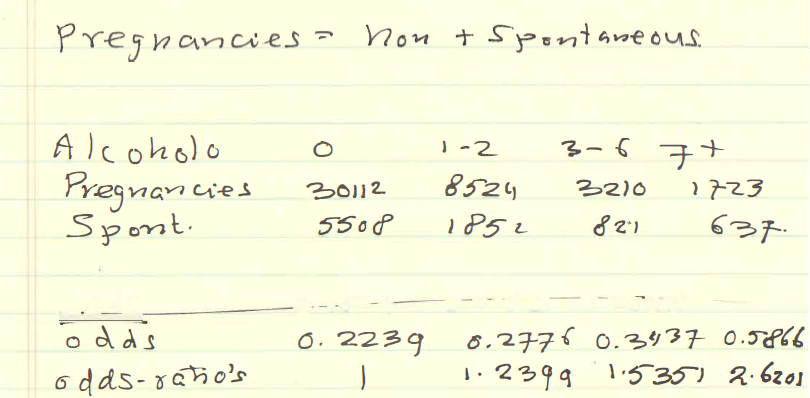 Pregnancies = Non + Spontaneous.
Alcoholo 0 1-2 3-6 7+
Pregnancies 30112 8524 3210 1723
Spont. 5508 1852 821 637.
odds 0.2239 0.2776 0.3437 0.5866
odds-ratio's 1 1.2399 1.5351 2.6201